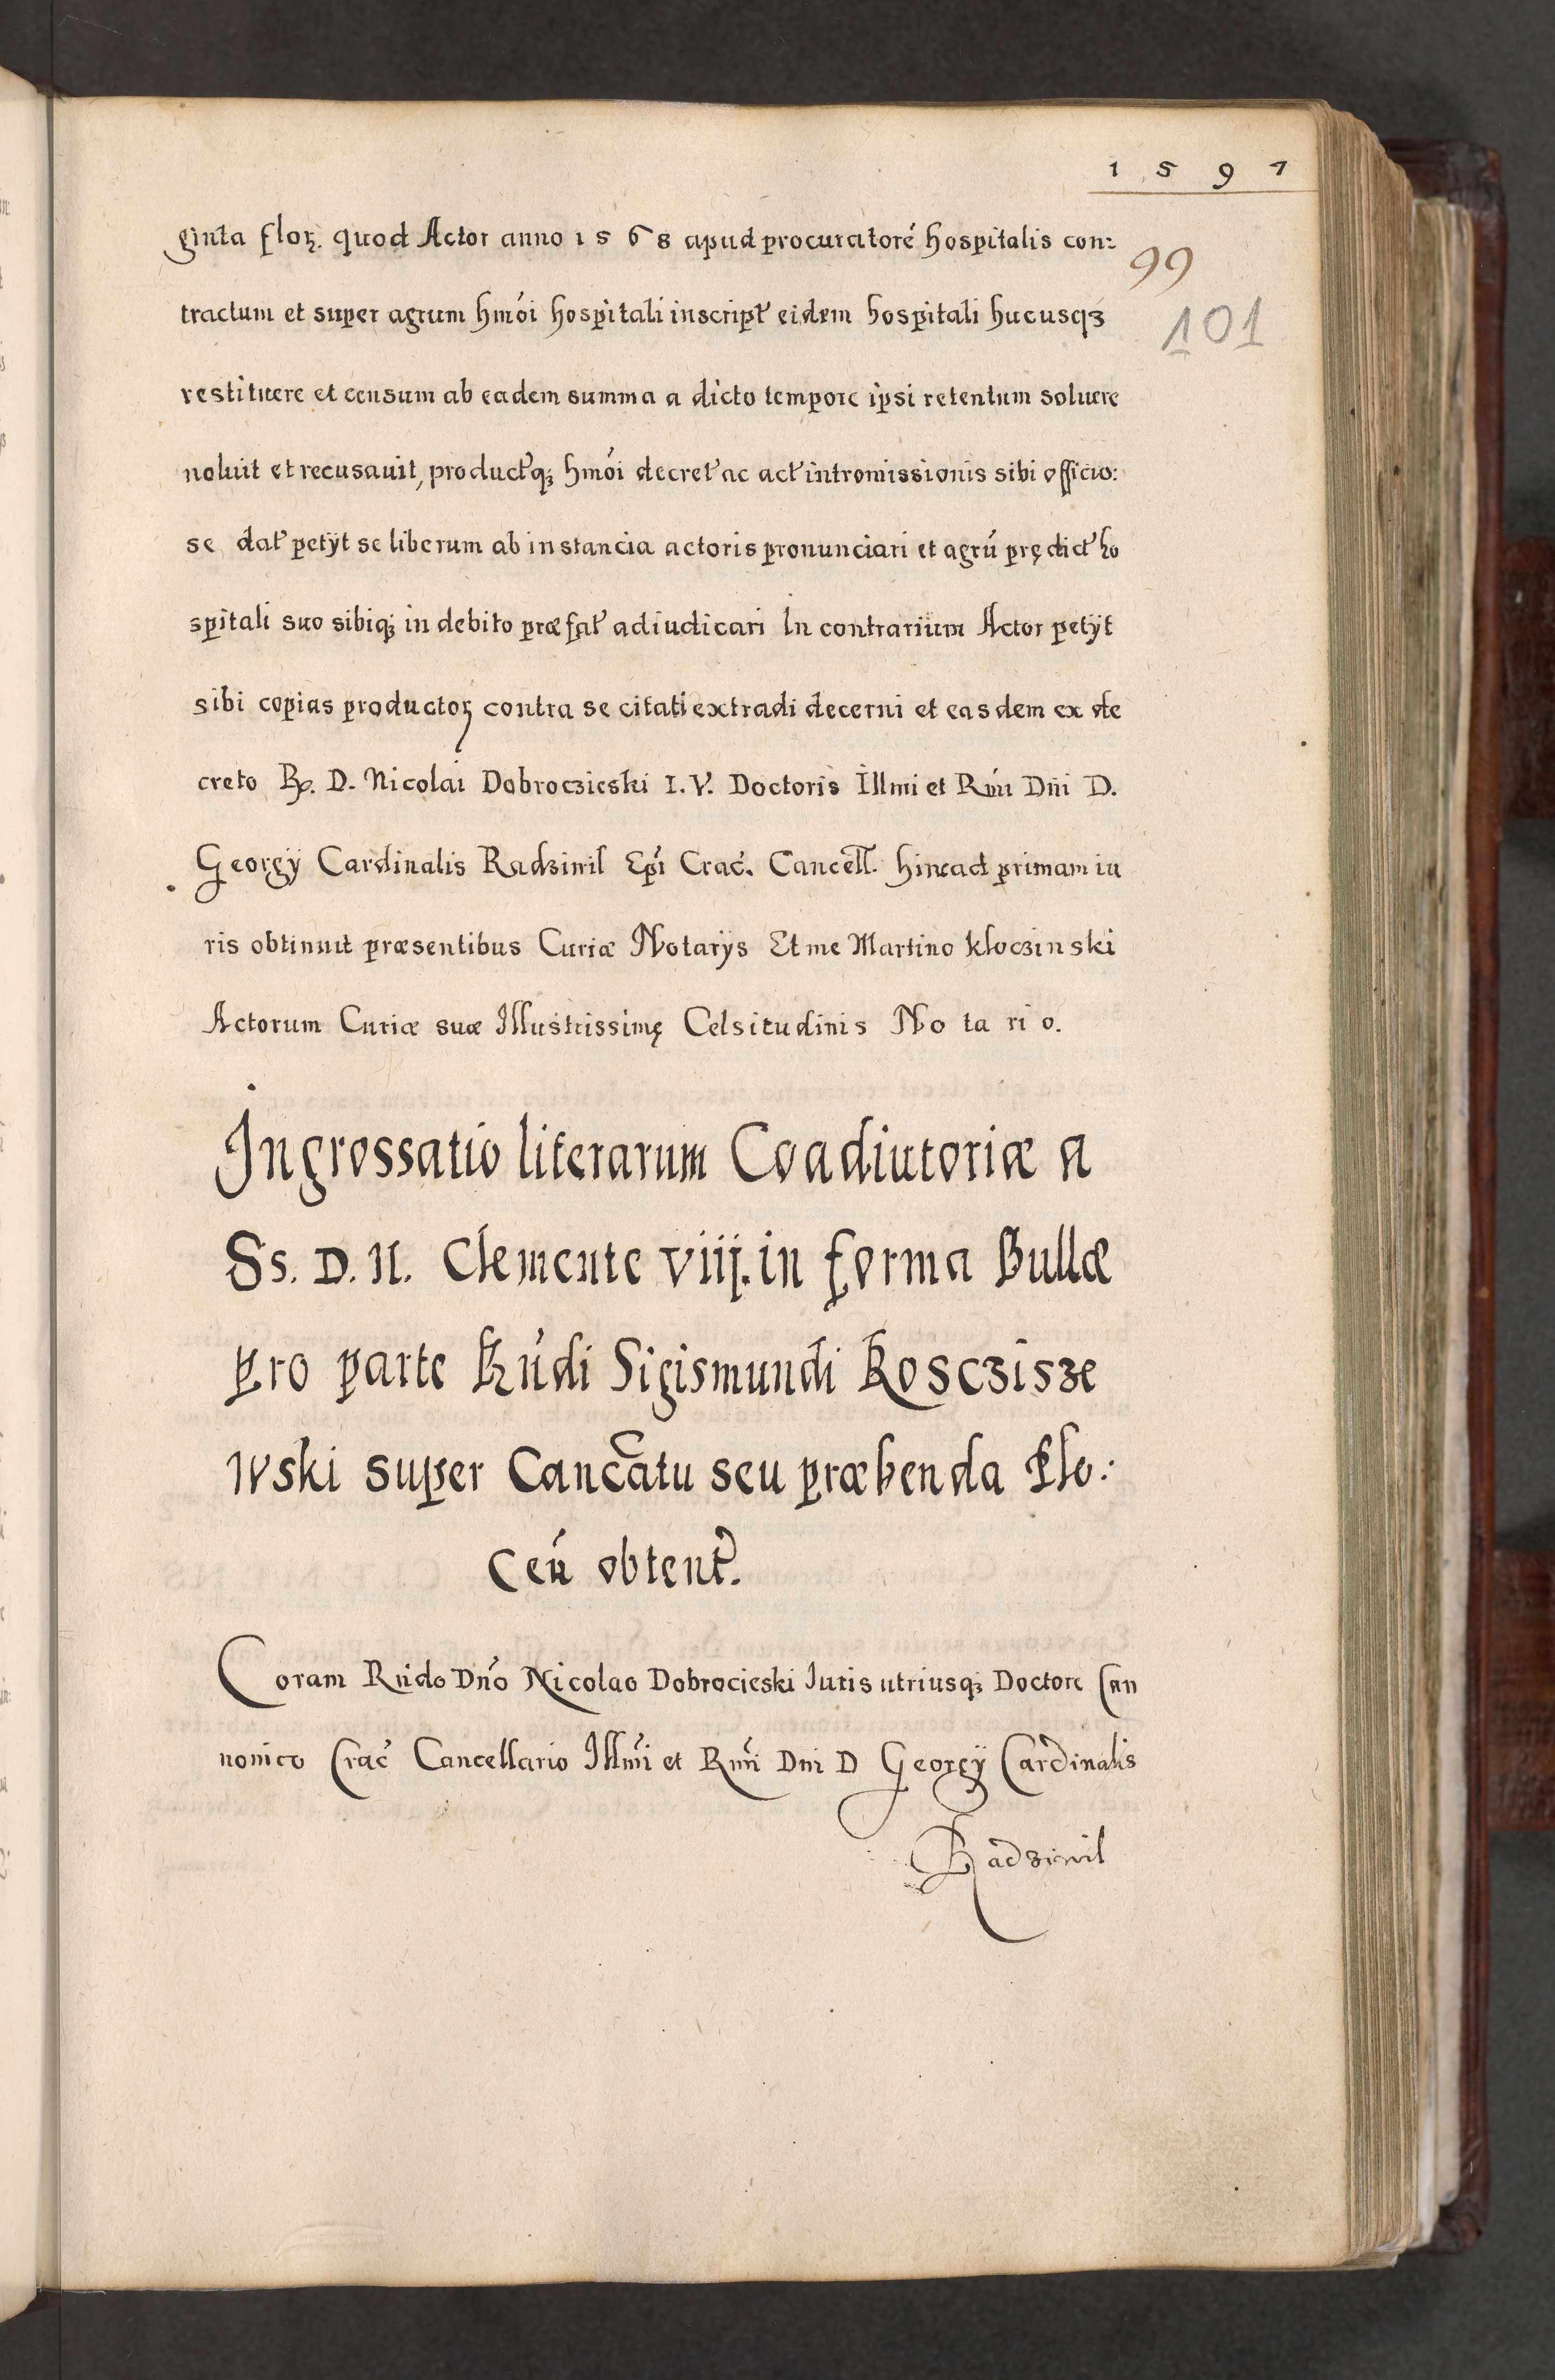 1 5 9 7
ginta floꝝ. quod Actor anno 1 5 6 8 apud procuratoré hospitalis con:
99
tractum et super agrum hmói hospitali inscript eidem hospitali hucusqꝫ
101
restituere et censum ab eadem summa a dicto tempore ipsi retentum soluere
noluit et recusauit, productqꝫ hmói decret ac act intromissionis sibi officio:
se dat petÿt se liberum ab instancia actoris pronunciari et agrú prędict ho
spitali suo sibiqꝫ in debito præfat adiudicari In contrarium Actor petÿt
sibi copias productoꝝ contra se citati extradi decerni et easdem ex de
creto R. D. Nicolai Dobroczieski I. V. Doctoris Illmi et Rmi Dni D.
Georgÿ Cardinalis Radziwil Epi Crac. Cancell. hinc ad primam iu
ris obtinuit præsentibus Curiæ Notarÿs Et me Martino Kłoczinski
Actorum Curiæ suæ Illustrissimę Celsitudinis No ta ri o.
Ingrossatio literarum Coadiutoriæ a
Ss. D. N. Clemente viij. in forma Bullæ
pro parte Rńdi Sigismundi Roscziszе
wski super Cancatu seu præbenda Plo:
Ceń obtent.
Coram Rńdo Dńo Nicolao Dobrocieski Iuris utriusqꝫ Doctore Can
nonico Crac Cancellario Illmi et Rmi Dni D Georgÿ Cardinalis
Radziwil